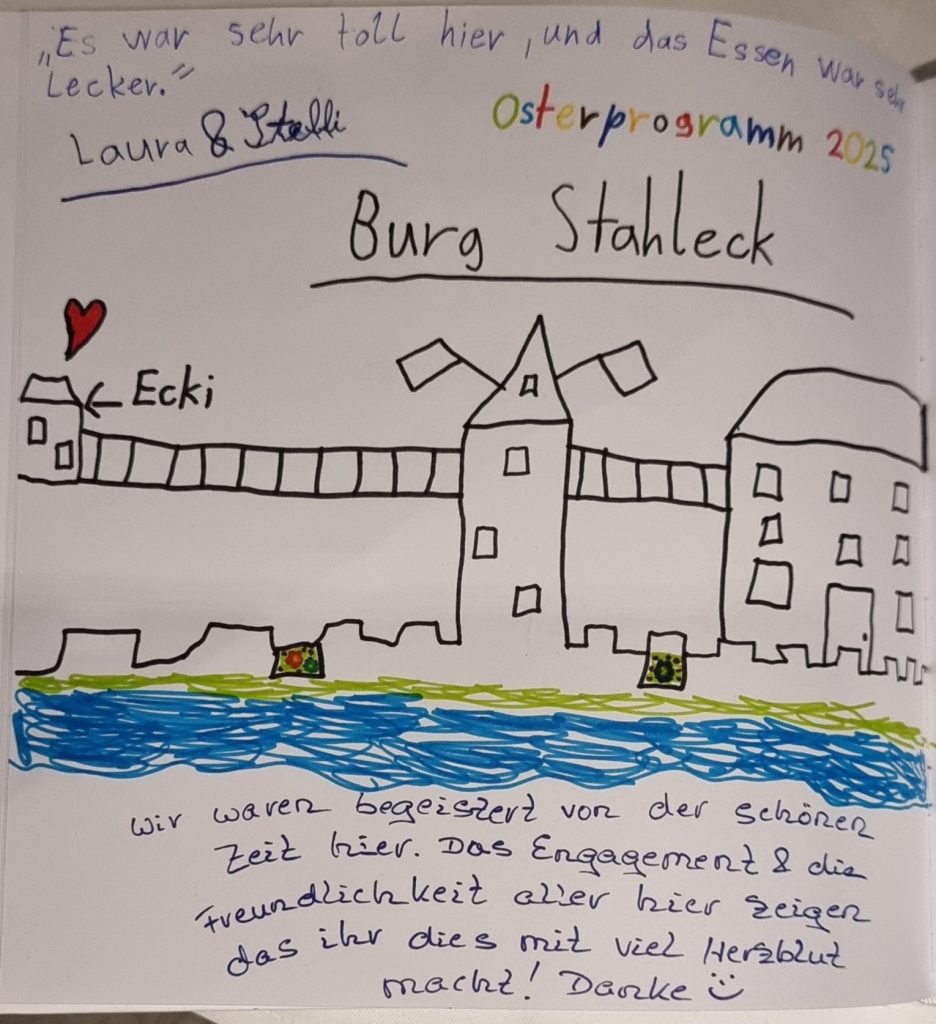 „Es war sehr toll hier, und das Essen war sehr
Lecker.“
Laura &
Osterprogramm 2025
Burg Stahleck
← Ecki
Wir waren begeistert von der schönen
Zeit hier. Das Engagement & die
Freundlichkeit aller hier zeigen
das ihr dies mit viel Herzblut
macht! Danke ☺